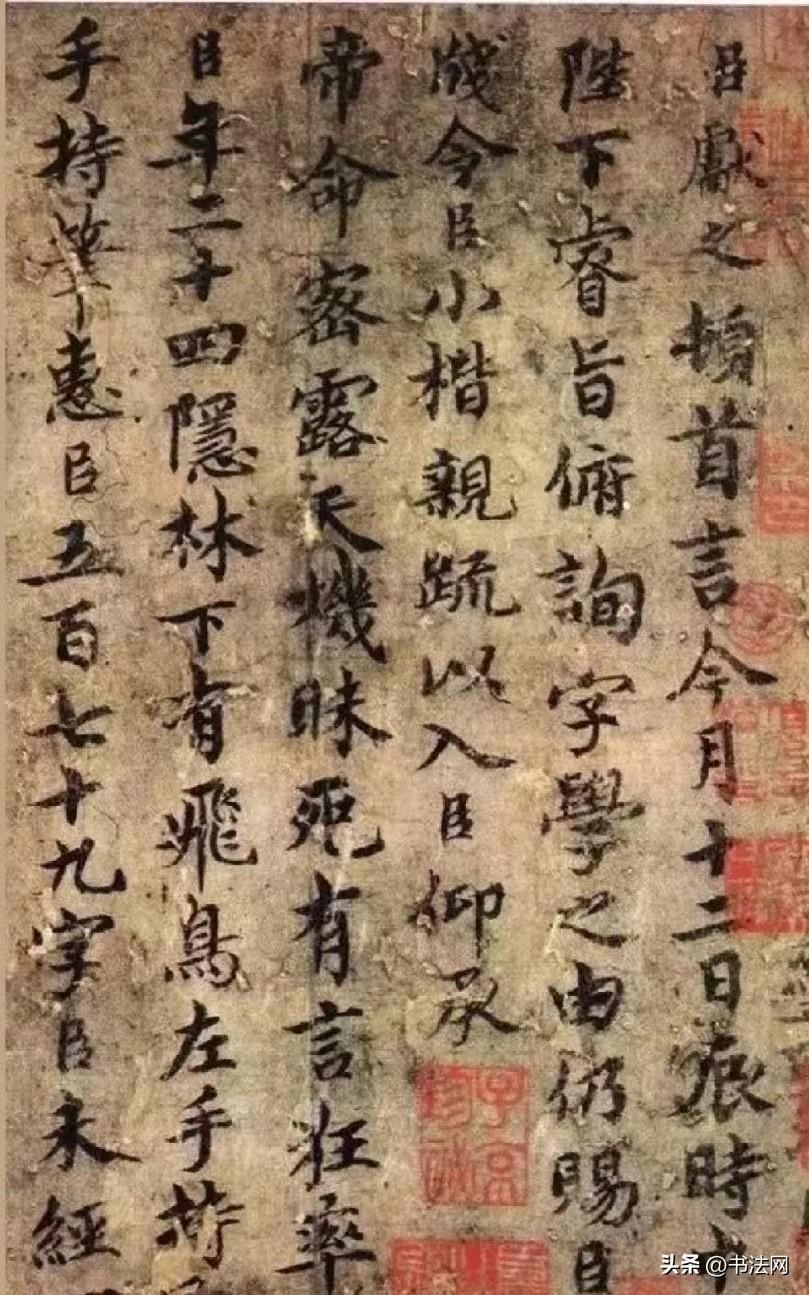 臣獻之頓首言今月十二日時中
陛下睿旨俯詢字學之由仍賜臣
牋令臣小楷親疏以入臣仰承
帝命密露天機昧死有言狂率
臣年二十四隱林下有飛鳥左手持
手持筆惠臣五百七十九字臣未經
头条 @书法网